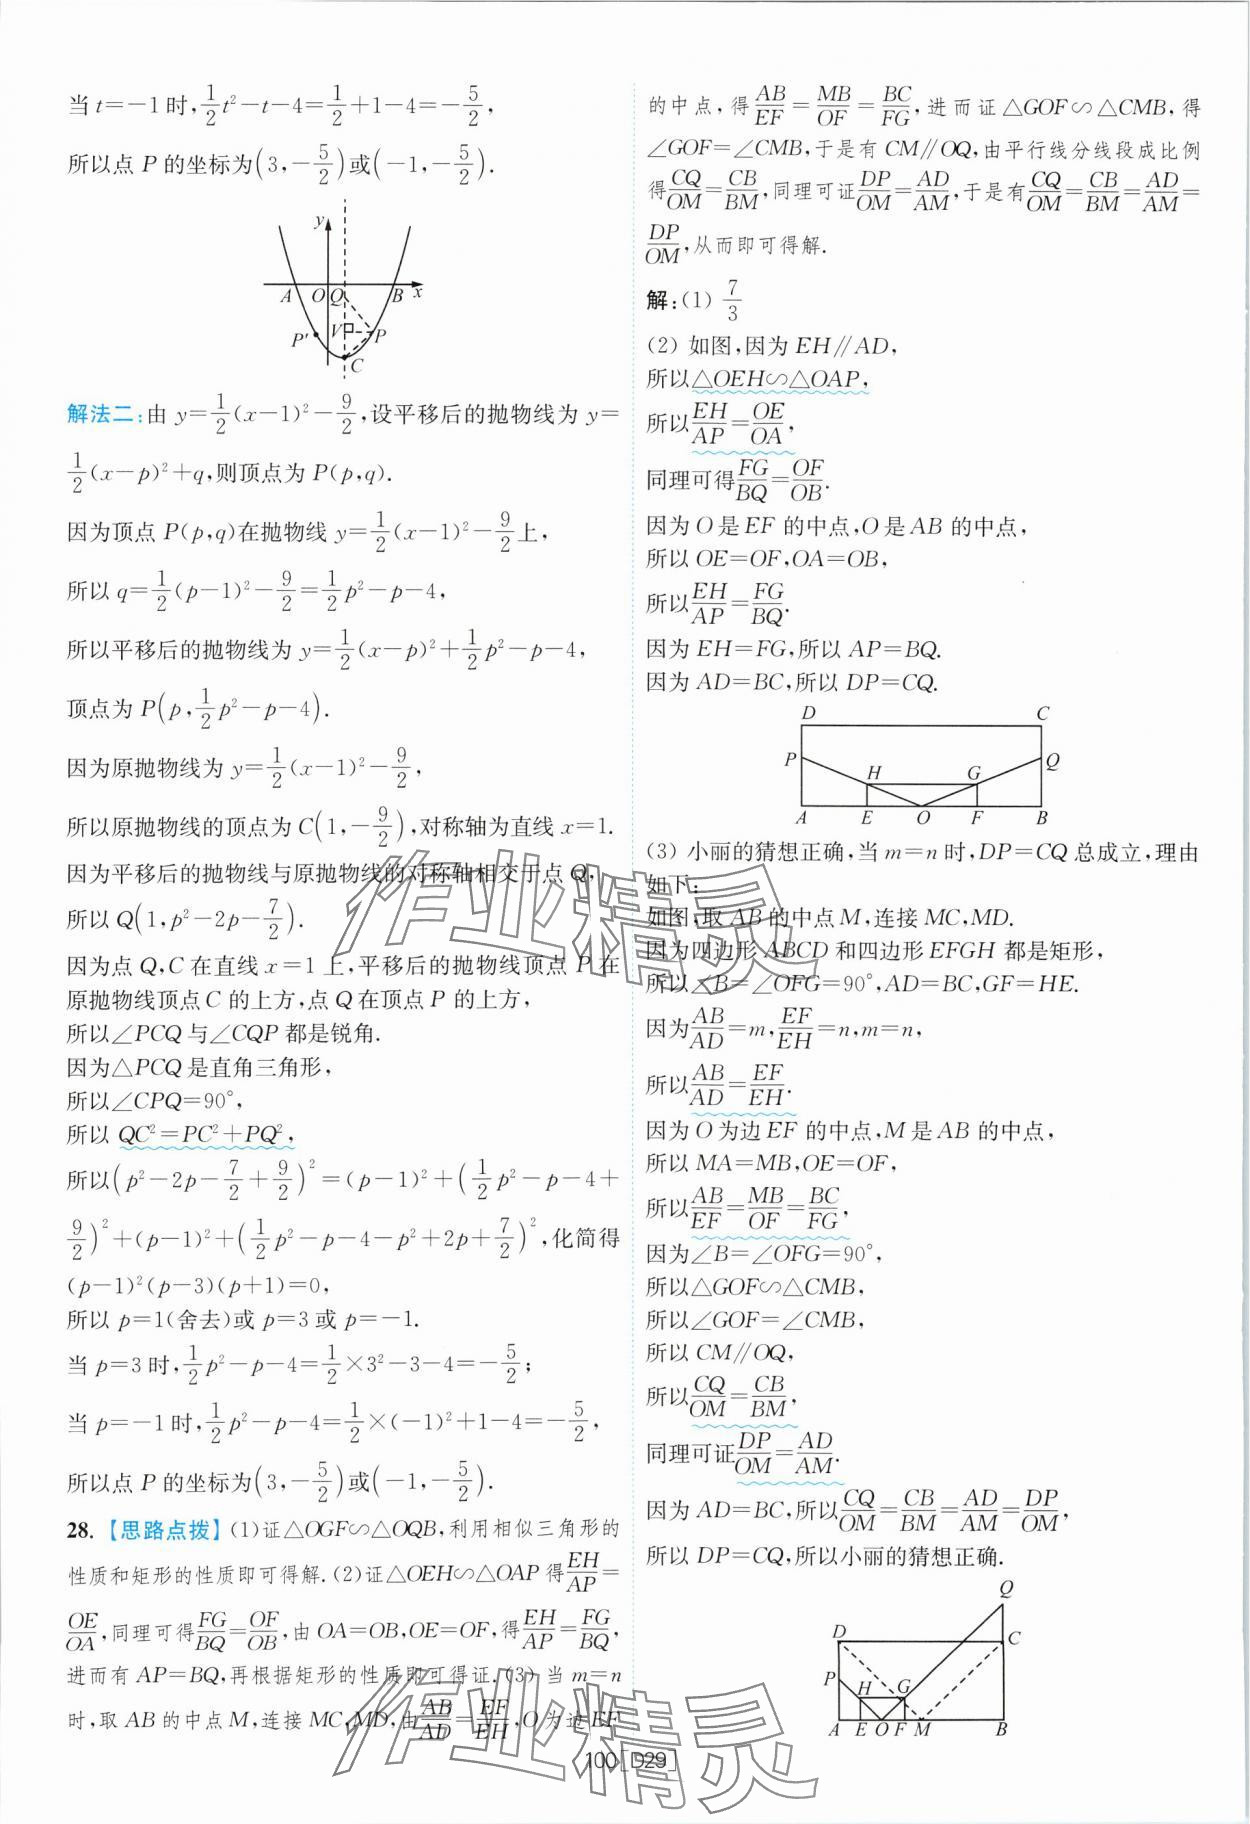 当 t=-1 时,1/2 t²-t-4=1/2+1-4=-5/2,
所以点 P 的坐标为(3,-5/2)或(-1,-5/2).
y
A O Q B x
P′ V P
C
解法二:由 y=1/2(x-1)²-9/2,设平移后的抛物线为 y=
1/2(x-p)²+q,则顶点为 P(p,q).
因为顶点 P(p,q)在抛物线 y=1/2(x-1)²-9/2上,
所以 q=1/2(p-1)²-9/2=1/2 p²-p-4,
所以平移后的抛物线为 y=1/2(x-p)²+1/2 p²-p-4,
顶点为 P(p,1/2 p²-p-4).
因为原抛物线为 y=1/2(x-1)²-9/2,
所以原抛物线的顶点为 C(1,-9/2),对称轴为直线 x=1.
因为平移后的抛物线与原抛物线的对称轴相交于点 Q,
所以 Q(1,p²-2p-7/2).
因为点 Q,C 在直线 x=1 上,平移后的抛物线顶点 P 在
原抛物线顶点 C 的上方,点 Q 在顶点 P 的上方,
所以∠PCQ 与∠CQP 都是锐角.
因为△PCQ 是直角三角形,
所以∠CPQ=90°,
所以 QC²=PC²+PQ²,
所以(p²-2p-7/2+9/2)²=(p-1)²+(1/2 p²-p-4+
9/2)²+(p-1)²+(1/2 p²-p-4-p²+2p+7/2)²,化简得
(p-1)²(p-3)(p+1)=0,
所以 p=1(舍去)或 p=3 或 p=-1.
当 p=3 时,1/2 p²-p-4=1/2×3²-3-4=-5/2;
当 p=-1 时,1/2 p²-p-4=1/2×(-1)²+1-4=-5/2,
所以点 P 的坐标为(3,-5/2)或(-1,-5/2).
28.【思路点拨】(1)证△OGF∽△OQB,利用相似三角形的
性质和矩形的性质即可得解.(2)证△OEH∽△OAP 得EH/AP=
OE/OA,同理可得FG/BQ=OF/OB,由 OA=OB,OE=OF,得EH/AP=FG/BQ,
进而有 AP=BQ,再根据矩形的性质即可得证.(3)当 m=n
时,取 AB 的中点 M,连接 MC,MD,由AB/AD=EF/EH,O 为边 EF
的中点,得AB/EF=MB/OF=BC/FG,进而证△GOF∽△CMB,得
∠GOF=∠CMB,于是有 CM∥OQ,由平行线分线段成比例
得CQ/OM=CB/BM,同理可证DP/OM=AD/AM,于是有CQ/OM=CB/BM=AD/AM=
DP/OM,从而即可得解.
解:(1) 7/3
(2) 如图,因为 EH∥AD,
所以△OEH∽△OAP,
所以EH/AP=OE/OA,
同理可得FG/BQ=OF/OB.
因为 O 是 EF 的中点,O 是 AB 的中点,
所以 OE=OF,OA=OB,
所以EH/AP=FG/BQ.
因为 EH=FG,所以 AP=BQ.
因为 AD=BC,所以 DP=CQ.
D C
P H G Q
A E O F B
(3) 小丽的猜想正确,当 m=n 时,DP=CQ 总成立,理由
如下:
如图,取 AB 的中点 M,连接 MC,MD.
因为四边形 ABCD 和四边形 EFGH 都是矩形,
所以∠B=∠OFG=90°,AD=BC,GF=HE.
因为AB/AD=m,EF/EH=n,m=n,
所以AB/AD=EF/EH.
因为 O 为边 EF 的中点,M 是 AB 的中点,
所以 MA=MB,OE=OF,
所以AB/EF=MB/OF=BC/FG,
因为∠B=∠OFG=90°,
所以△GOF∽△CMB,
所以∠GOF=∠CMB,
所以 CM∥OQ,
所以CQ/OM=CB/BM,
同理可证DP/OM=AD/AM.
因为 AD=BC,所以CQ/OM=CB/BM=AD/AM=DP/OM,
所以 DP=CQ,所以小丽的猜想正确.
Q
D C
P H G
A E O F M B
100[D29]
作业精灵
作业精灵